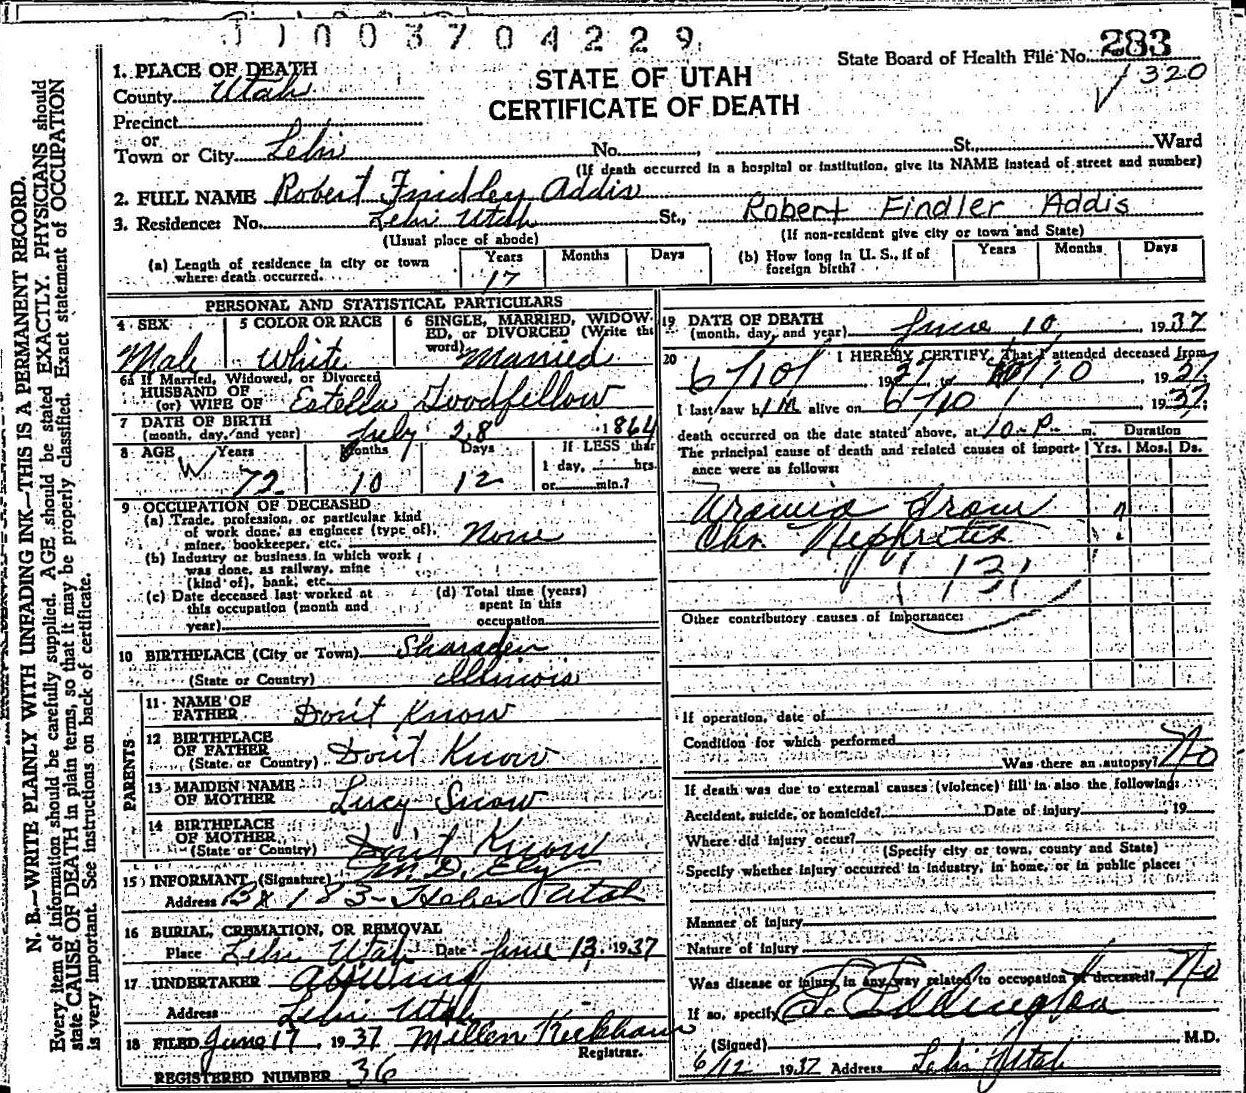 11003704229
State Board of Health File No. 283
320
STATE OF UTAH
CERTIFICATE OF DEATH
1. PLACE OF DEATH
County Utah
Precinct
or
Town or City Lehi No. , St., Ward
(If death occurred in a hospital or institution, give its NAME instead of street and number)
2. FULL NAME Robert Findley Addis
3. Residence: No. Lehi Utah St., Robert Findler Addis
(Usual place of abode) (If non-resident give city or town and State)
(a) Length of residence in city or town where death occurred. Years 17 Months Days
(b) How long in U. S., if of foreign birth? Years Months Days
PERSONAL AND STATISTICAL PARTICULARS
4 SEX Male
5 COLOR OR RACE White
6 SINGLE, MARRIED, WIDOWED, or DIVORCED (Write the word) Married
6a If Married, Widowed, or Divorced
HUSBAND OF
(or) WIFE OF Estella Goodfellow
7 DATE OF BIRTH
(month, day, and year) July 28 1864
8 AGE Years 72 Months 10 Days 12
If LESS than
1 day, hrs.
or min.?
9 OCCUPATION OF DECEASED
(a) Trade, profession, or particular kind
of work done, as engineer (type of),
miner, bookkeeper, etc. None
(b) Industry or business in which work
was done, as railway, mine
(kind of), bank, etc.
(c) Date deceased last worked at
this occupation (month and
year)
(d) Total time (years)
spent in this
occupation
10 BIRTHPLACE (City or Town)
(State or Country) Illinois
PARENTS
11 NAME OF
FATHER Don't Know
12 BIRTHPLACE
OF FATHER
(State or Country) Don't Know
13 MAIDEN NAME
OF MOTHER Lucy Snow
14 BIRTHPLACE
OF MOTHER
(State or Country) Don't Know
15 INFORMANT (Signature) M. D. Ely
Address Bx 183 - Heber Utah
16 BURIAL, CREMATION, OR REMOVAL
Place Lehi Utah Date June 13, 1937
17 UNDERTAKER
Address Lehi Utah
18 FILED June 17, 1937
Registrar.
REGISTERED NUMBER 36
19 DATE OF DEATH
(month, day, and year) June 10, 1937
20 I HEREBY CERTIFY, That I attended deceased from
6/10/ 1937, to 6/10 1937
I last saw him alive on 6/10 1937;
death occurred on the date stated above, at 10 P. m. Duration
The principal cause of death and related causes of importance were as follows: Yrs. Mos. Ds.
Uremia from ?
Chr. Nephritis
(131
Other contributory causes of importance:
If operation, date of
Condition for which performed
Was there an autopsy? No
If death was due to external causes (violence) fill in also the following:
Accident, suicide, or homicide? Date of injury , 19
Where did injury occur?
(Specify city or town, county and State)
Specify whether injury occurred in industry, in home, or in public place:
Manner of injury
Nature of injury
Was disease or injury in any way related to occupation of deceased? No
If so, specify
(Signed) Eddington M.D.
6/12 1937 Address Lehi Utah
N. B.—WRITE PLAINLY WITH UNFADING INK—THIS IS A PERMANENT RECORD.
Every item of information should be carefully supplied. AGE should be stated EXACTLY. PHYSICIANS should
state CAUSE OF DEATH in plain terms, so that it may be properly classified. Exact statement of OCCUPATION
is very important. See instructions on back of certificate.